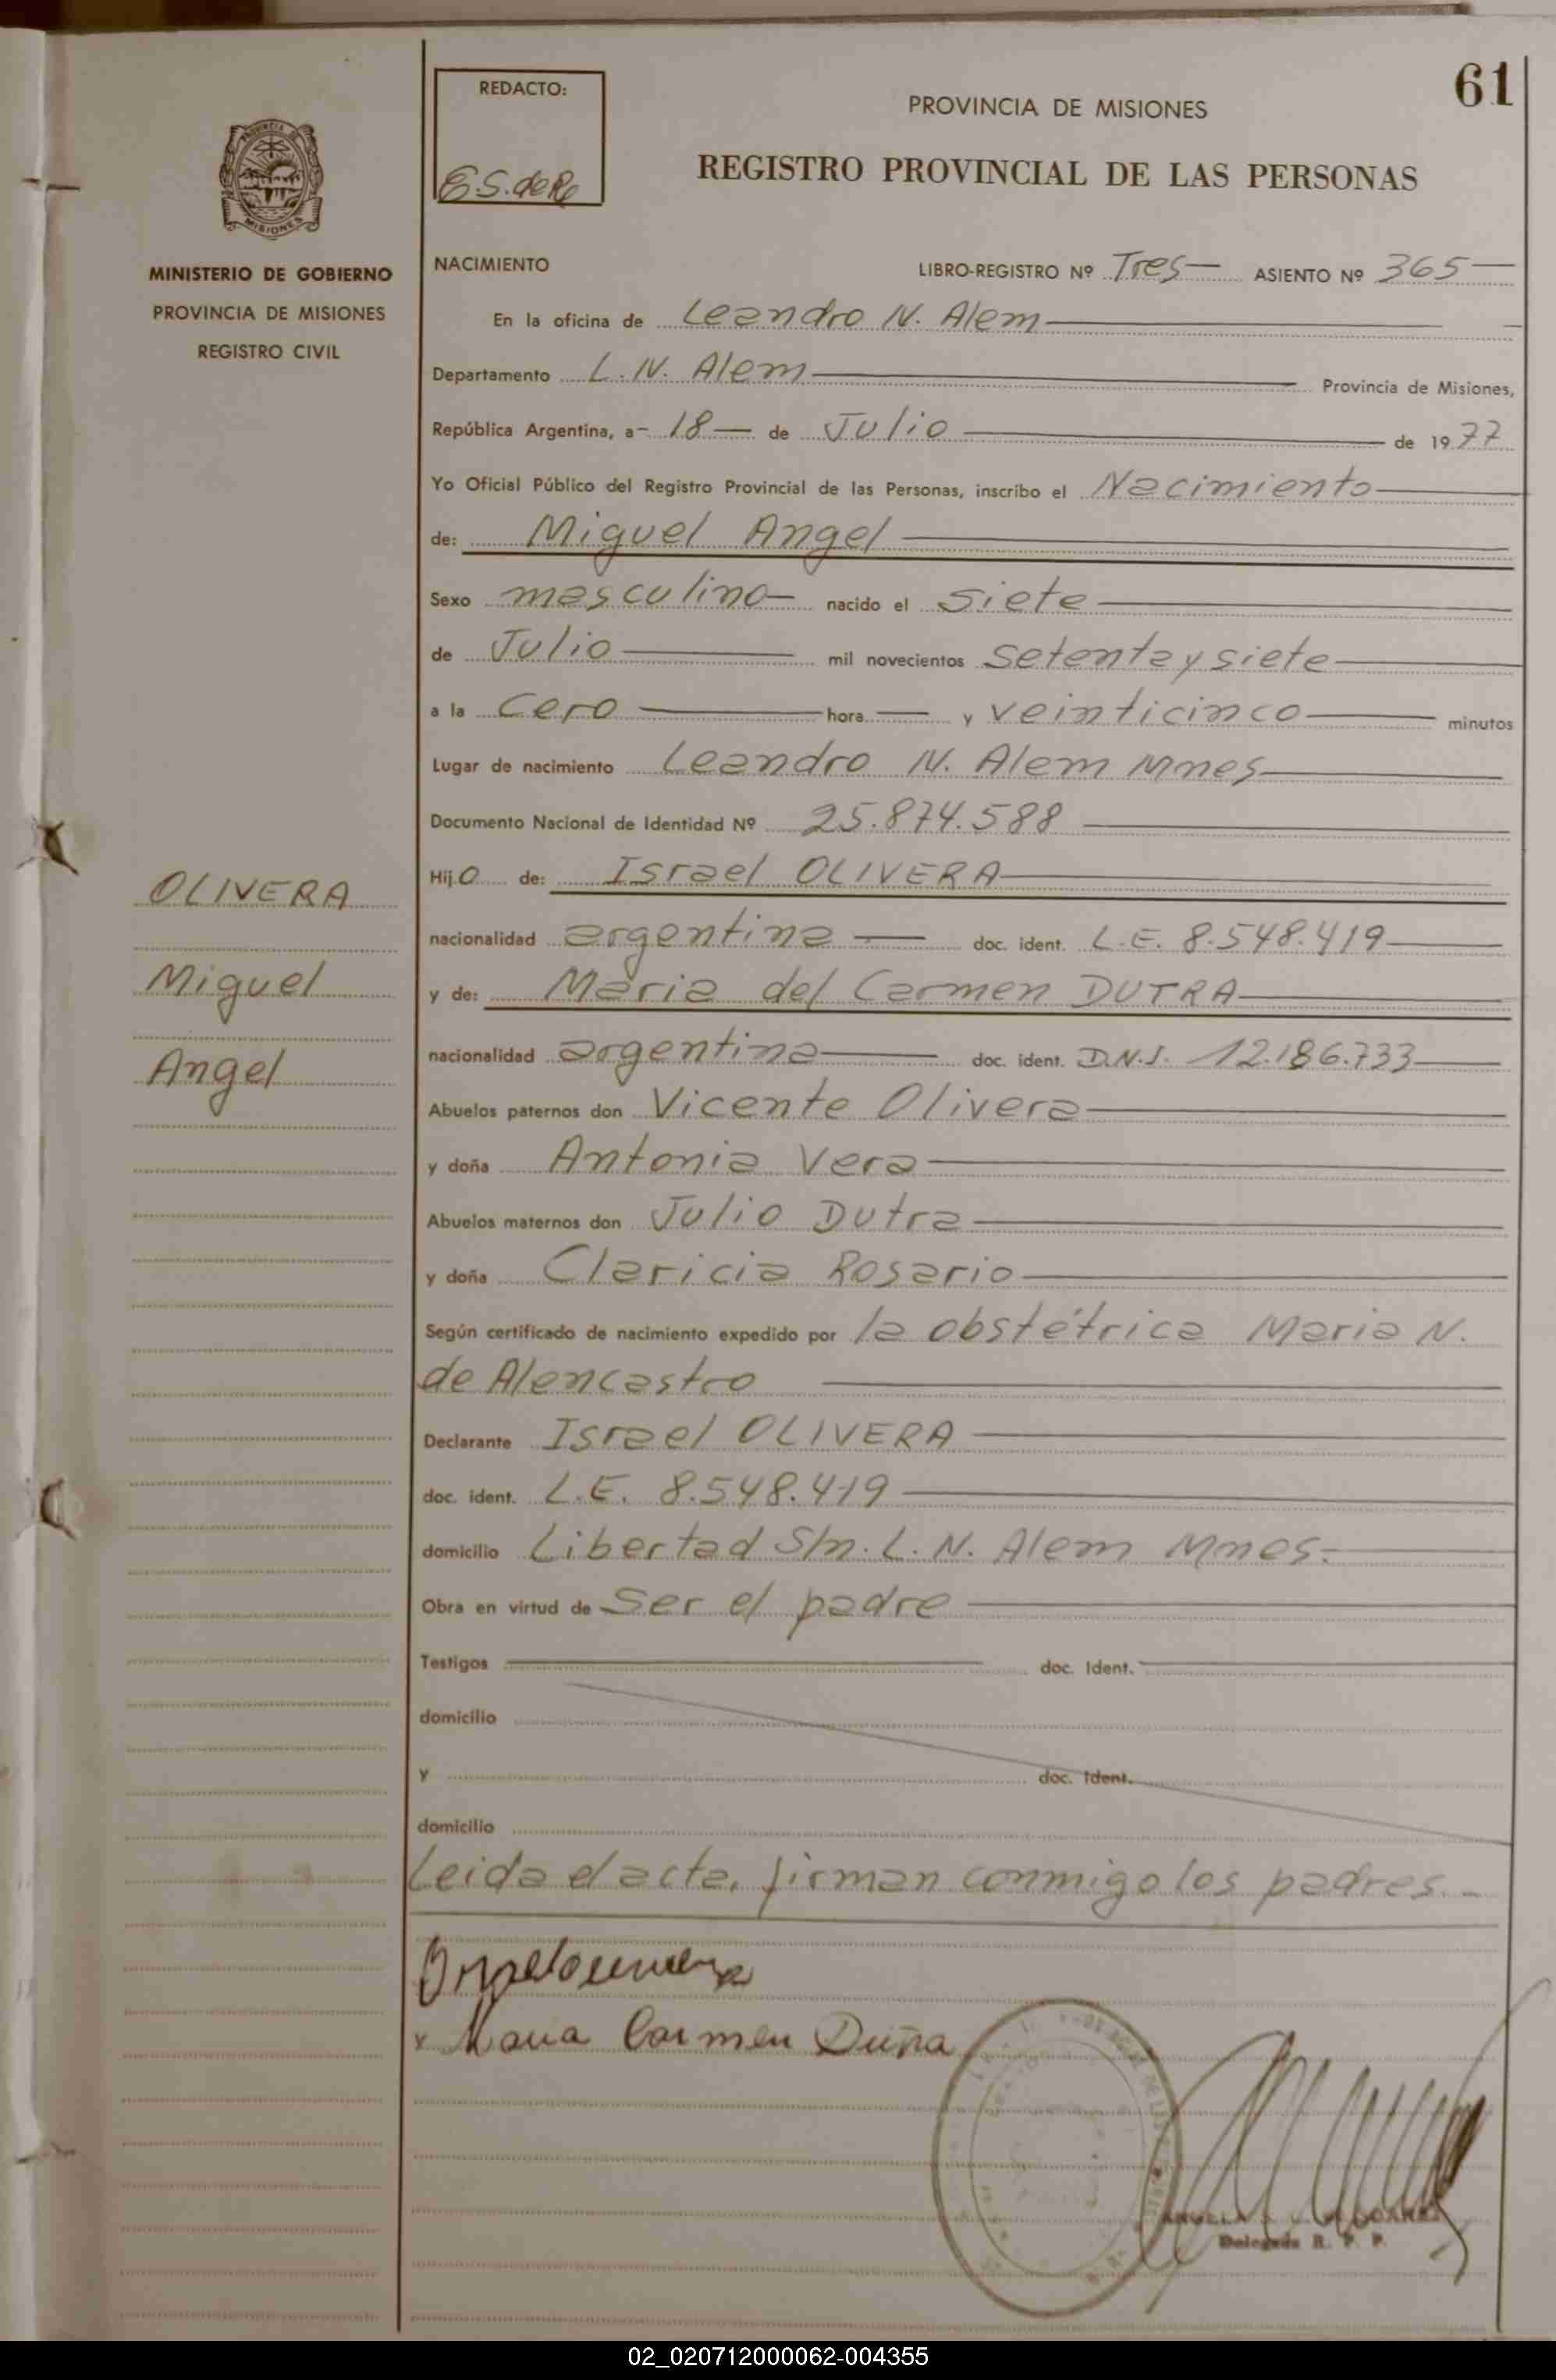 61
REDACTO:
E.S. de Re
PROVINCIA DE MISIONES
REGISTRO PROVINCIAL DE LAS PERSONAS
PROVINCIA DE
MISIONES
MINISTERIO DE GOBIERNO
PROVINCIA DE MISIONES
REGISTRO CIVIL
NACIMIENTO LIBRO-REGISTRO Nº Tres ASIENTO Nº 365
En la oficina de Leandro N. Alem
Departamento L. N. Alem Provincia de Misiones,
República Argentina, a 18 de Julio de 1977
Yo Oficial Público del Registro Provincial de las Personas, inscribo el Nacimiento
de: Miguel Angel
Sexo masculino nacido el siete
de Julio mil novecientos setenta y siete
a la cero hora y veinticinco minutos
Lugar de nacimiento Leandro N. Alem Mnes
Documento Nacional de Identidad Nº 25.874.588
Hijo de: Israel OLIVERA
nacionalidad argentina doc. ident. L.E. 8.548.419
y de: Maria del Carmen DUTRA
nacionalidad argentina doc. ident. D.N.I. 12.186.733
Abuelos paternos don Vicente Olivera
y doña Antonia Vera
Abuelos maternos don Julio Dutra
y doña Claricia Rosario
Según certificado de nacimiento expedido por la obstétrica Maria N.
de Alencastro
Declarante Israel OLIVERA
doc. ident. L.E. 8.548.419
domicilio Libertad S/n. L. N. Alem Mnes.
Obra en virtud de Ser el padre
Testigos doc. Ident.
domicilio
y doc. Ident.
domicilio
Leida el acta, firman conmigo los padres.
OLIVERA
Miguel
Angel
Maria Carmen
Delegada R. P. P.
02_020712000062-004355